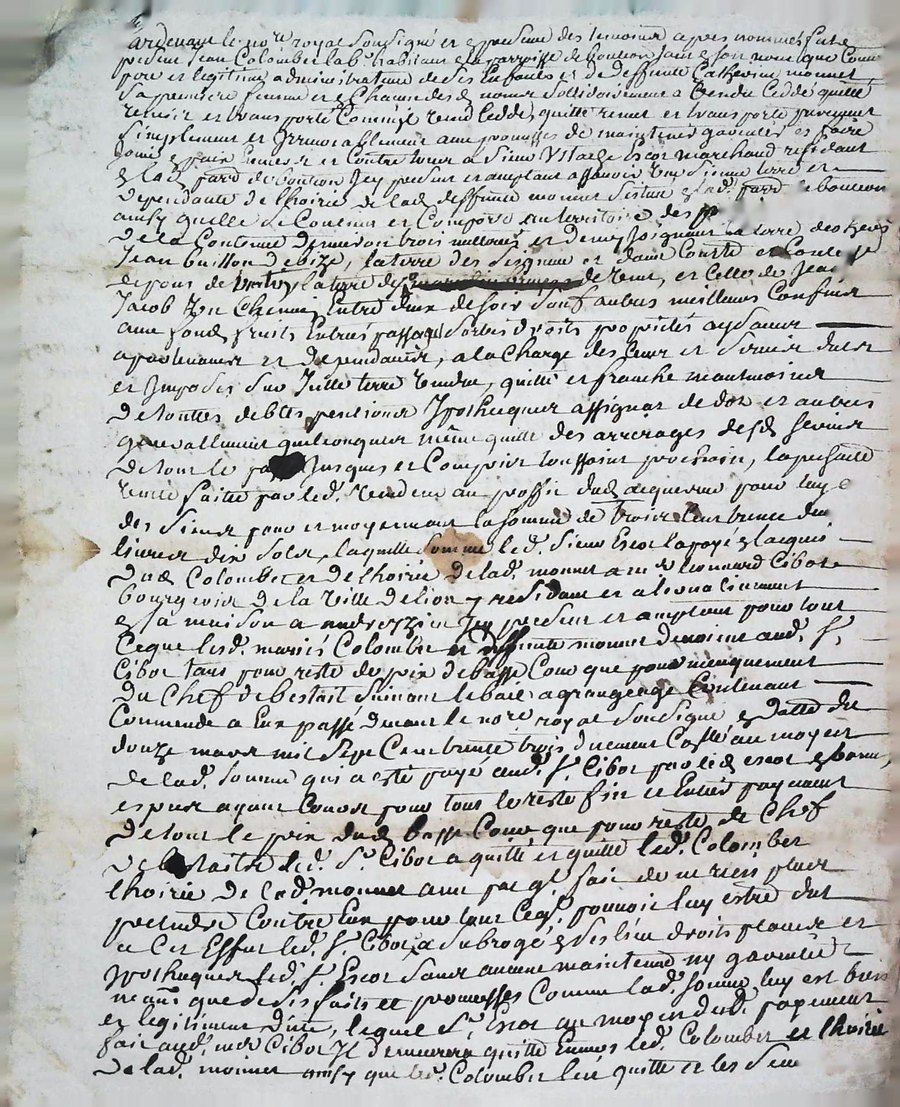 Pardevant le no.re royal sousigné et presence des temoins apres nommés fut
present Jean Colombet lab.r habitant en la parroisse de bouteon tant en son nom que Comme
pere et legitime administrateur de ses Enfants et de deffunte Catherine monnet
sa premiere femme et en Chacun desd. noms sollidairement a Vendu Ceddé quitté
remis et transporté Comme il vend Cedde, quitte remet et transporte purement
simplement et Irrevocablement avec promesses de maintenir garentir et faire
jouir en paix Envers et Contre tous a sieur Ystache Escot marchand residant
en lad. parr.e de bouteon Icy present et acceptant assavoir Une sienne terre et
dependante de lhoirie de lad. deffunte monnet scituée en lad. parr.e de bouteon
ainsy quelle se Consiste et Comporte au territoire des
de la Contenue d'environ trois metterées et demy, joignant la terre des hers
Jean buisson de bize, la terre des seigneur et dame Comte et Comtesse
de pons de la terre de de vent, et Celle de Jean
Jacob Un Chemin Entre deux de soir sauf autres meilleurs Confins
avec fonds fruits Entrées passages sorties droits proprietés aysances
apartenances et dependances, a la Charge des Cens et servis dus
et Imposés sur Icelle terre Vendue, quitte et franche neantmoins
de touttes debtes pentions Ypotheques assignat de dot et autres
generallement quelconques même quitte des arrerages desd. servis
de tout le passé Jusques et Compris toussaint prochain, la presente
vente faitte par led. vendeur au proffit dud. acquereur pour luy et
des siens pour et moyennant la somme de trois Cent trente deux
livres dix sols, laquelle somme led. sieur Escot la payé en lacquit
dud. Colombet et de lhoirie de lad. monnet a m.r Leonnard Cibot
bourgeois de la Ville de lion y residant et a present
en sa maison a andrezieu Icy present et acceptant pour tout
Ce que lesd. mariés Colombet et deffunte monnet devoient aud. s.r
Cibot tant pour reste de prix de basse Cour que pour
du Chef de bestail suivant le bail a grangeage Contenant
Commende a Eux passé devant le no.re royal sousigné en datte du
douze mars mil sept Cent trente trois duement Collé au moyen
de lad. somme qui a esté payé aud. s.r Cibot par led. Escot
especes ayant Cours pour tout le reste fin et Entier payement
de tout le prix dud. basse Cour que pour reste de Chef
de bestaille led. s.r Cibot a quitté et quitte led. Colombet
lhoirie de lad. monnet avec pacq. fait de ne rien plus
pretendre Contre Eux pour tout Ceq. pouvoit luy estre dut
a Cet Effet led. s.r Cibot a subrogé en ses lieu droits places et
Ypotheques led. s.r Escot sans aucune maintenue ny garentie
neant. que de ses faits et promesses Comme lad. somme luy est bien
et legitimement düe, lequel s.r Escot au moyen dud. payement
fait aud. s.r Cibot Il demeurera quitte Envers led. Colombet et lhoirie
de lad. monnet ainsy que led. Colombet len quitte et les siens